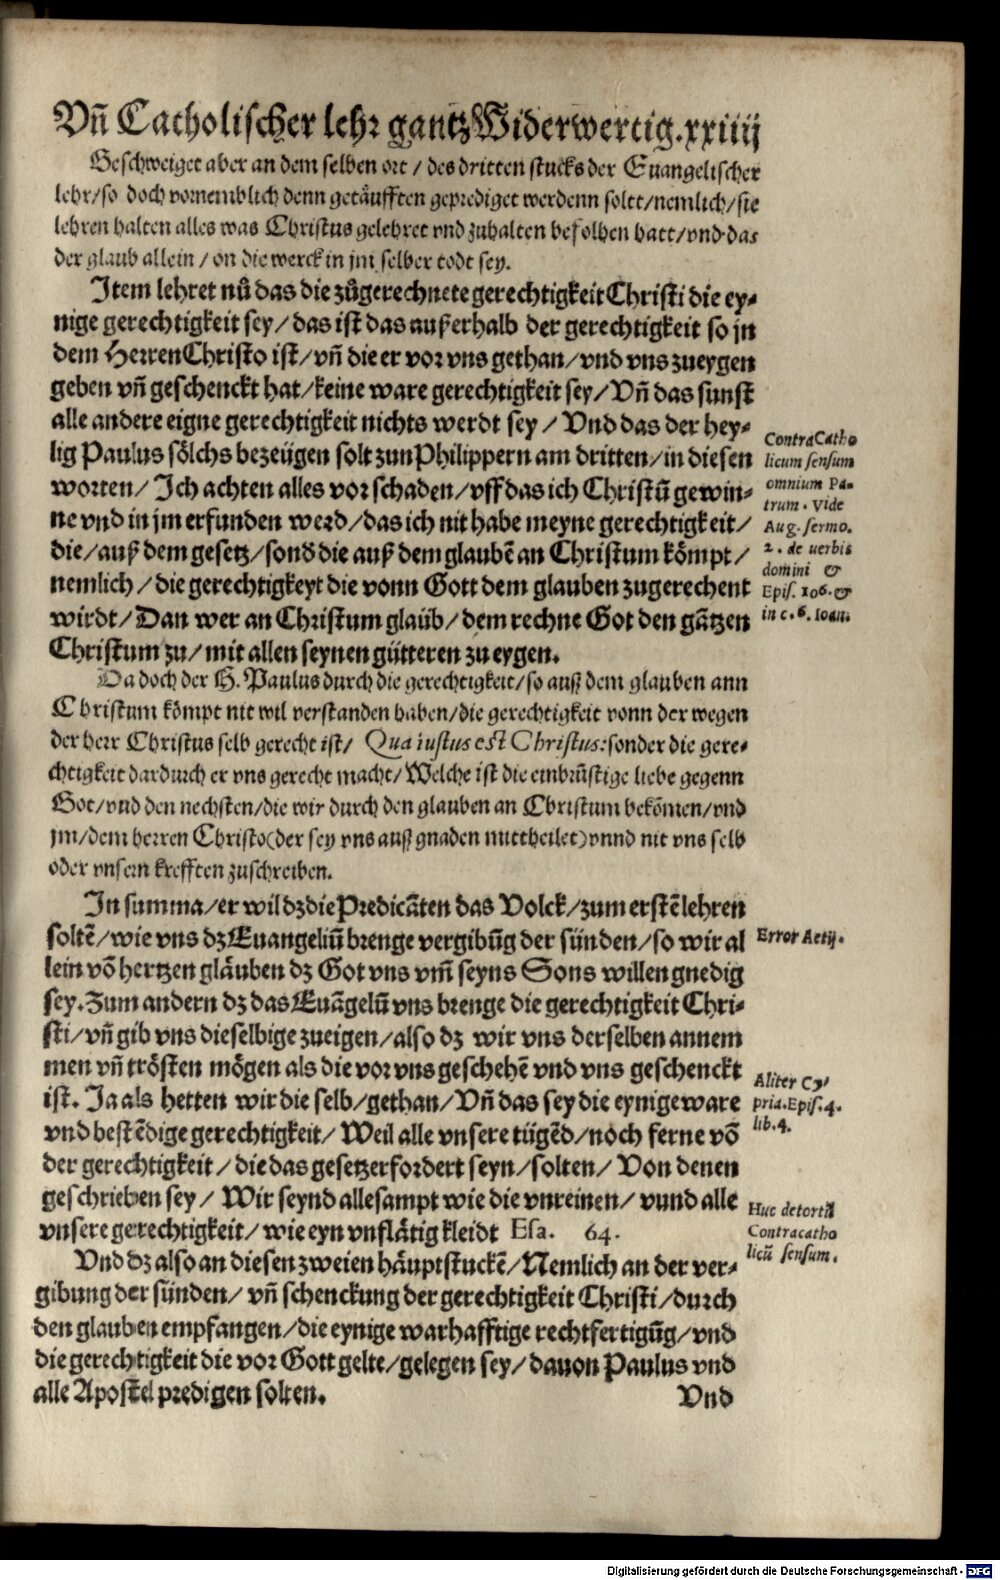 Vñ Catholischer lehr gantz Widerwertig.xxiiij
Geschweiget aber an dem selben ort / des dritten stucks der Euangelischer
lehr/so doch vornemblich denn getäufften geprediget werdenn soltt/nemlich/sie
lehren halten alles was Christus gelehret vnd zuhalten befolhen hatt/vnd das
der glaub allein / on die werck in jm selber todt sey.
Item lehret nů das die zůgerechnete gerechtigkeit Christi die ey-
nige gerechtigkeit sey/ das ist das außerhalb der gerechtigkeit so jn
dem Herren Christo ist/ vñ die er vor vns gethan/ vnd vns zueygen
geben vñ geschenckt hat/ keine ware gerechtigkeit sey/ Vñ das sunst
alle andere eigne gerechtigkeit nichts werdt sey / Vnd das der hey-
lig Paulus sölchs bezeügen solt zun Philippern am dritten/ in diesen
worten/ Ich achten alles vor schaden/ vff das ich Christũ gewin-
ne vnd in jm erfunden werd/ das ich nit habe meyne gerechtigkeit/
die/ auß dem gesetz/ sonď die auß dem glaubẽ an Christum kömpt/
nemlich/ die gerechtigkeyt die vonn Gott dem glauben zugerechent
wirdt/ Dan wer an Christum glaüb/ dem rechne Got den gãtzen
Christum zu/ mit allen seynen gütteren zu eygen.
Contra Catho
licum sensum
omnium Pa-
trum. Vide
Aug. sermo.
2. de uerbis
domini &
Epis. 106. &
in c. 6. Ioan.
Da doch der H. Paulus durch die gerechtigkeit/ so auß dem glauben ann
Christum kömpt nit wil verstanden haben/die gerechtigkeit vonn der wegen
der herr Christus selb gerecht ist/ Qua iustus est Christus: sonder die gere-
chtigkeit dardurch er vns gerecht macht/ Welche ist die einbrüstige liebe gegenn
Got/vnd den nechsten/die wir durch den glauben an Christum bekõmen/vnd
jm/dem herren Christo(der sey vns auß gnaden mittheilet)vnnd nit vns selb
oder vnsern krefften zuschreiben.
In summa/ er wil dz die Predicãten das Volck/ zum erstẽ lehren
soltẽ/ wie vns dz Euangeliũ brenge vergibũg der sünden/ so wir al
lein võ hertzen gläuben dz Got vns vm̃ seyns Sons willen gnedig
sey. Zum andern dz das Euãgelũ vns brenge die gerechtigkeit Chri-
sti/ vñ gib vns dieselbige zueigen/ also dz wir vns derselben annem
men vñ trösten mögen als die vor vns geschehẽ vnd vns geschenckt
ist. Ja als hetten wir die selb/ gethan/ Vñ das sey die eynige ware
vnd bestẽdige gerechtigkeit/ Weil alle vnsere tügẽd/ noch ferne võ
der gerechtigkeit / die das gesetz erfordert seyn/ solten/ Von denen
geschrieben sey/ Wir seynd allesampt wie die vnreinen/ vund alle
vnsere gerechtigkeit/ wie eyn vnflätig kleidt Esa. 64.
Error Actij.
Aliter Cy-
pria. Epis. 4.
lib. 4.
Huc detortũ
Contracatho
licũ sensum.
Vnd dz also an diesen zweien häuptstuckẽ/ Nemlich an der ver-
gibung der sünden/ vñ schenckung der gerechtigkeit Christi/ durch
den glauben empfangen/ die eynige warhafftige rechtfertigũg/ vnd
die gerechtigkeit die vor Gott gelte/ gelegen sey/ dauon Paulus vnd
alle Apostel predigen solten.
Vnd
Digitalisierung gefördert durch die Deutsche Forschungsgemeinschaft - DFG